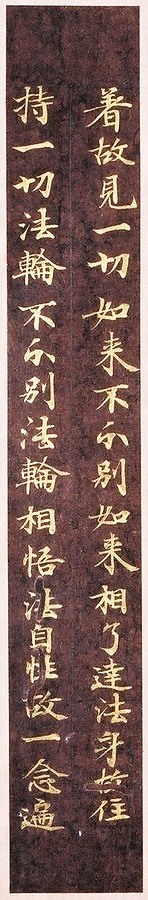 著故見一切如来不分別如来相了達法身故住
持一切法輪不分別法輪相悟法自性故一念遍